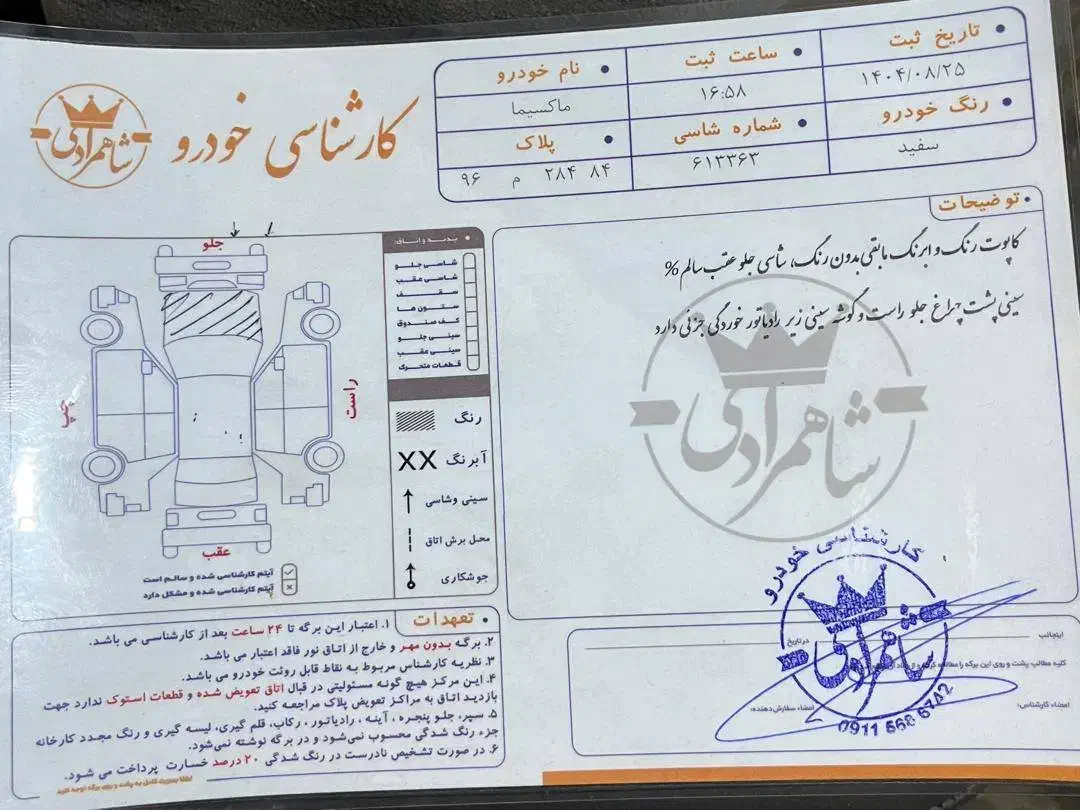 شاهمرادی
کارشناسی خودرو
نام خودرو
ماکسیما
ساعت ثبت
۱۶:۵۸
تاریخ ثبت
۱۴۰۴/۰۸/۲۵
پلاک
۹۶ م ۲۸۴ ۸۴
شماره شاسی
۶۱۳۳۶۳
رنگ خودرو
سفید
توضیحات
کاپوت رنگ و ابرنگ مابقی بدون رنگ، شاسی جلو عقب سالم %
سینی پشت چراغ جلو راست و گوشه سینی زیر رادیاتور خوردگی جزئی دارد
شاهمرادی
جلو
راست
چپ
عقب
بدنه و اتاق:
شاسی جلو
شاسی عقب
سقف
ستون ها
کف صندوق
سینی جلو
سینی عقب
قطعات متحرک
رنگ
آبرنگ XX
سینی وشاسی
محل برش اتاق
جوشکاری
آیتم کارشناسی شده و سالم است
آیتم کارشناسی شده و مشکل دارد
تعهدات
۱. اعتبار این برگه تا ۲۴ ساعت بعد از کارشناسی می باشد.
۲. برگه بدون مهر و خارج از اتاق نور فاقد اعتبار می باشد.
۳. نظریه کارشناس مربوط به نقاط قابل روئت خودرو می باشد.
۴. این مرکز هیچ گونه مسئولیتی در قبال اتاق تعویض شده و قطعات استوک ندارد جهت
بازدید اتاق به مراکز تعویض پلاک مراجعه کنید.
۵. سپر، جلو پنجره، آینه، رادیاتور، رکاب، قلم گیری، لیسه گیری و رنگ مجدد کارخانه
جزء رنگ شدگی محسوب نمی‌شود و در برگه نوشته نمی‌شود.
۶. در صورت تشخیص نادرست در رنگ شدگی ۲۰ درصد خسارت پرداخت می شود.
لطفا بصورت کامل به پشت و روی برگه توجه کنید
اینجانب
در تاریخ
کلیه مطالب پشت و روی این برگه را مطالعه کرده و از
امضاء سفارش دهنده:
امضاء کارشناس:
کارشناسی خودرو
شاهمرادی
0911 668 6742